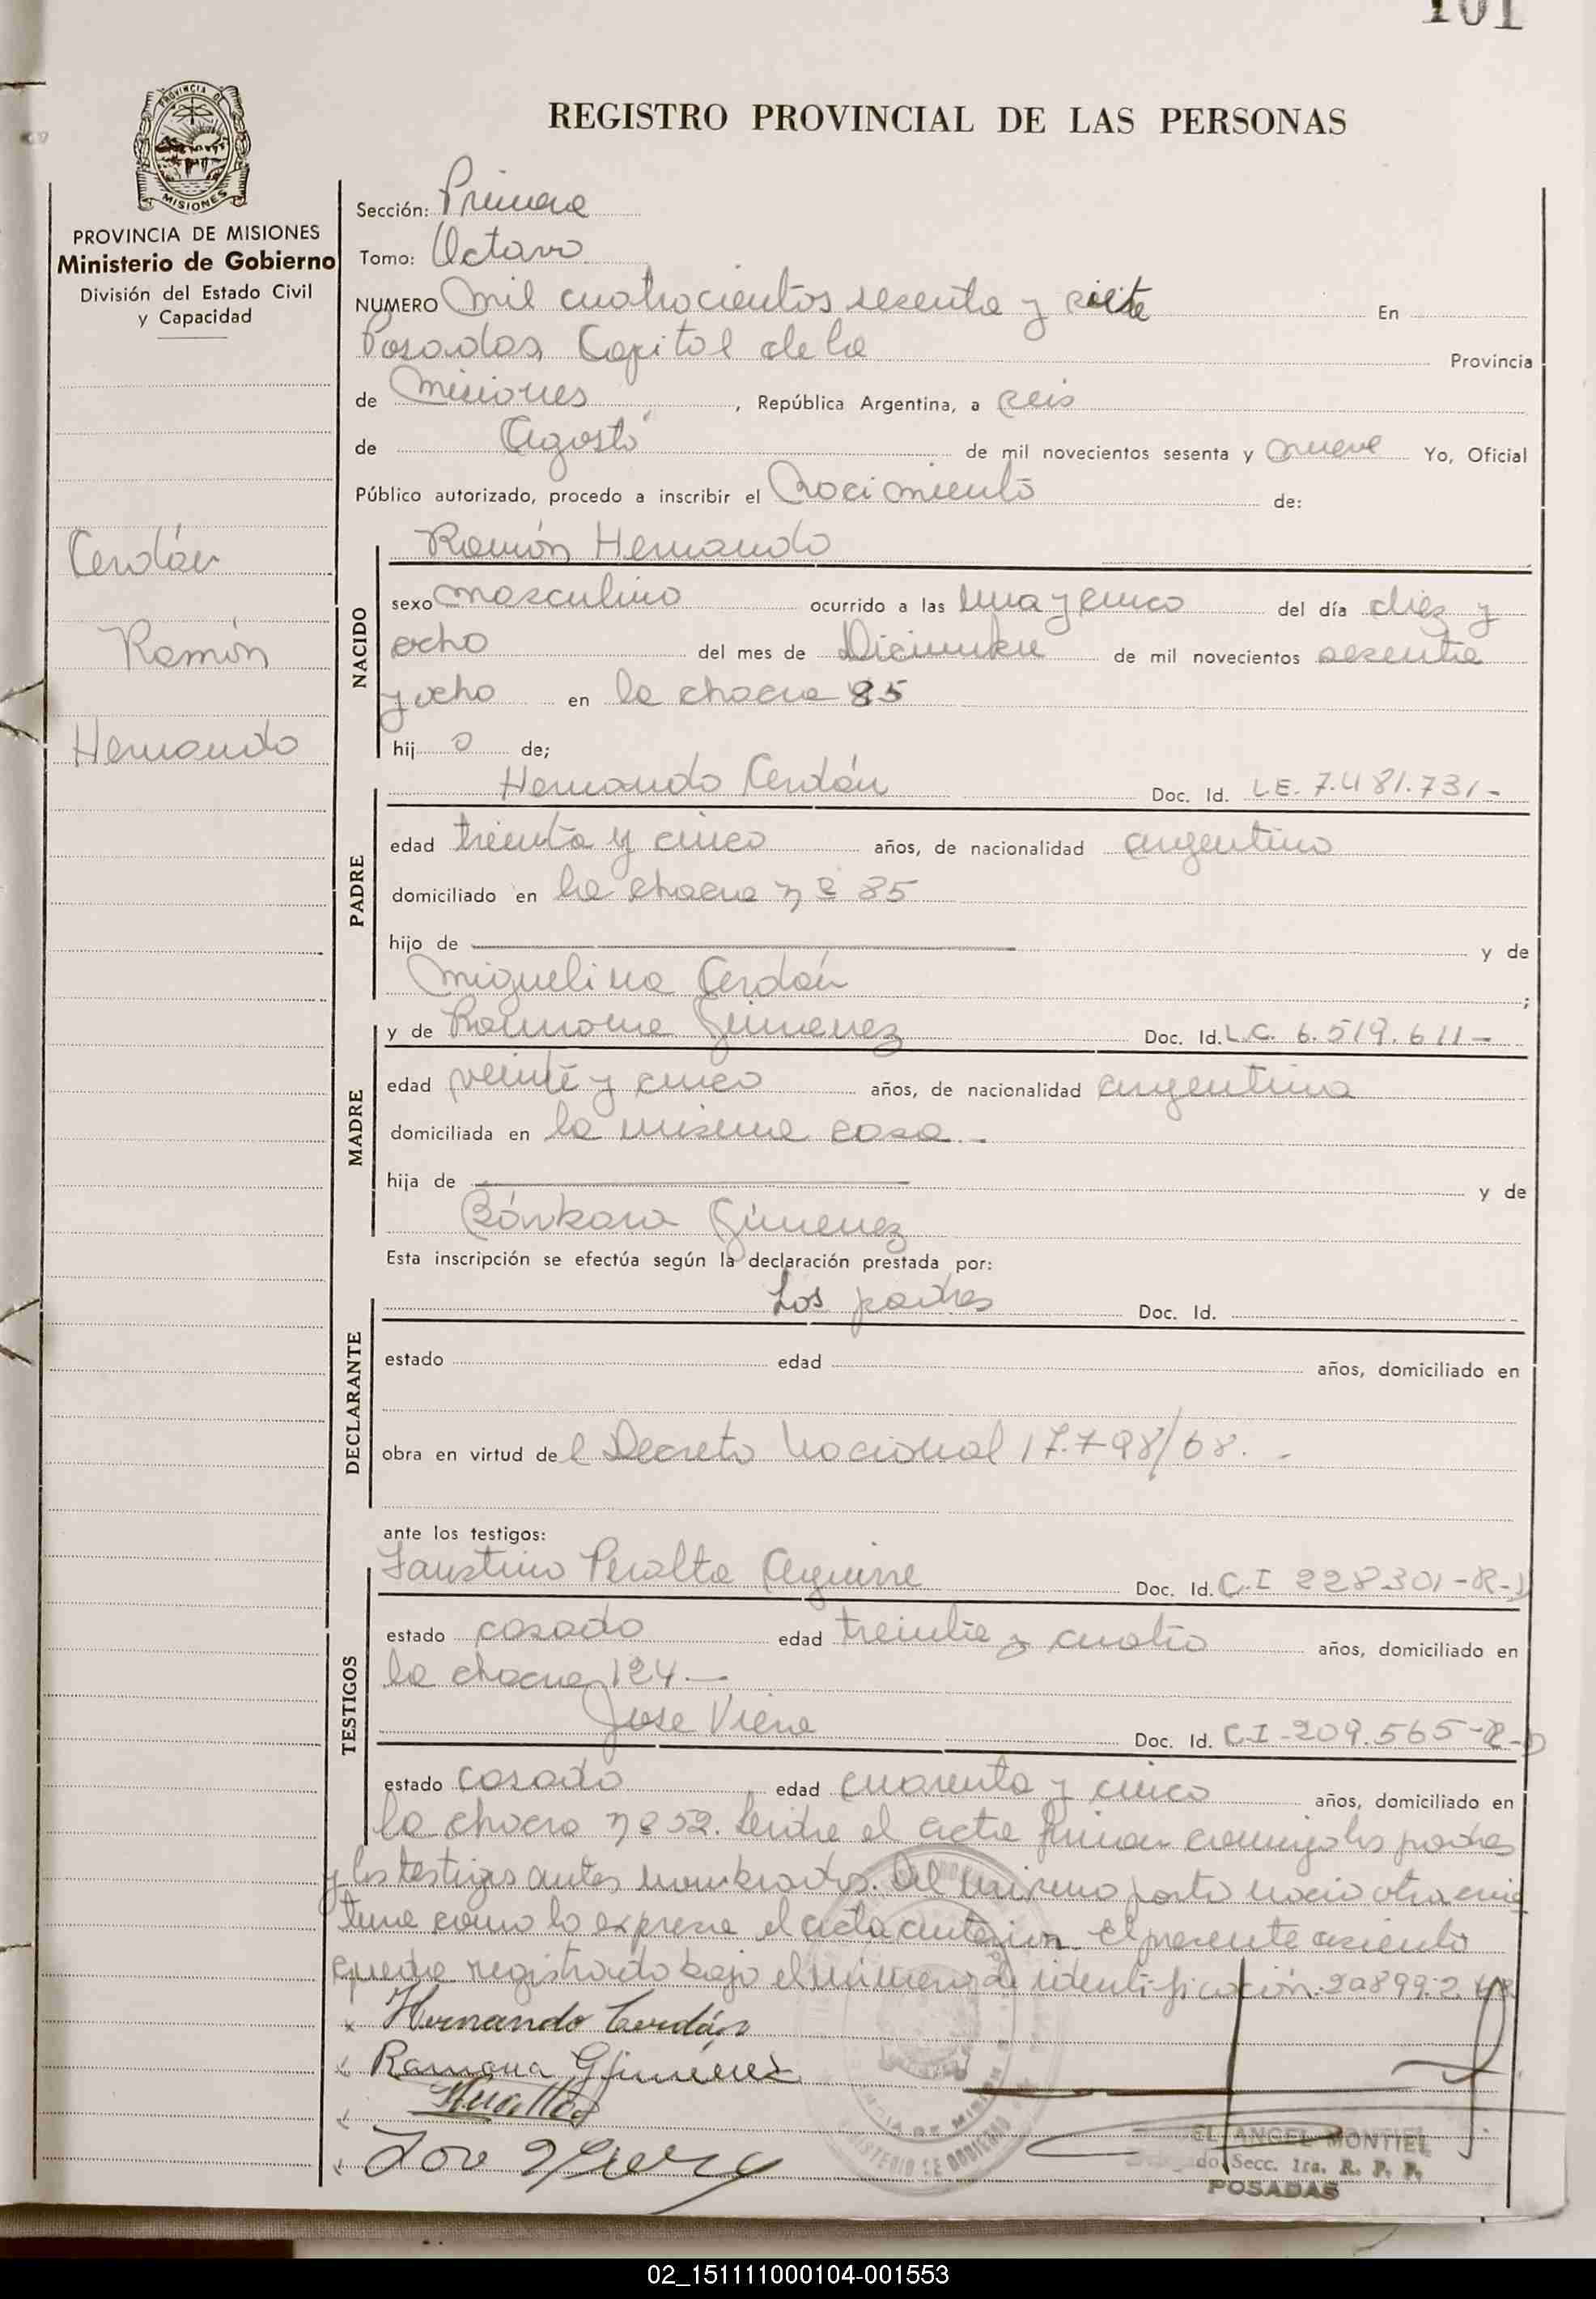 101
REGISTRO PROVINCIAL DE LAS PERSONAS
PROVINCIA DE MISIONES
Ministerio de Gobierno
División del Estado Civil
y Capacidad
Sección: Primera
Tomo: Octavo
NUMERO Mil cuatrocientos sesenta y siete En
Posadas, Capital de la Provincia
de Misiones, República Argentina, a seis
de Agosto de mil novecientos sesenta y nueve Yo, Oficial
Público autorizado, procedo a inscribir el Nacimiento de:
Cerdán
Ramón
Hernando
NACIDO
Ramón Hernando
sexo masculino ocurrido a las una y cinco del día diez y
ocho del mes de Diciembre de mil novecientos sesenta
y ocho en la chacra 85
hij o de;
PADRE
Hernando Cerdán Doc. Id. L.E. 7.481.731-
edad treinta y cinco años, de nacionalidad argentino
domiciliado en la chacra nº 85
hijo de y de
Miguelina Cerdán ;
MADRE
y de Ramona Gimenez Doc. Id. L.C. 6.519.611-
edad veinte y cinco años, de nacionalidad argentina
domiciliada en la misma casa.-
hija de y de
Bárbara Gimenez
Esta inscripción se efectúa según la declaración prestada por:
DECLARANTE
Los padres Doc. Id.
estado edad años, domiciliado en
obra en virtud de l Decreto Nacional 17.798/68.-
ante los testigos:
TESTIGOS
Faustino Peralta Aguirre Doc. Id. C.I 228301-R-D
estado casado edad treinta y cuatro años, domiciliado en
la chacra 124.-
Jose Viera Doc. Id. C.I-209.565-R-D
estado casado edad cuarenta y cinco años, domiciliado en
la chacra nº 52. Leída el acta firman conmigo los padres
y los testigos antes nombrados. Del mismo parto nació otra cria
tura como lo expresa el acta anterior. El presente asiento
queda registrado bajo el número de identificación: 20.899.2
x Hernando Cerdán
Ramona G Giménez
ANGEL MONTIEL
Secc. 1ra. R. P. P.
POSADAS
02_151111000104-001553